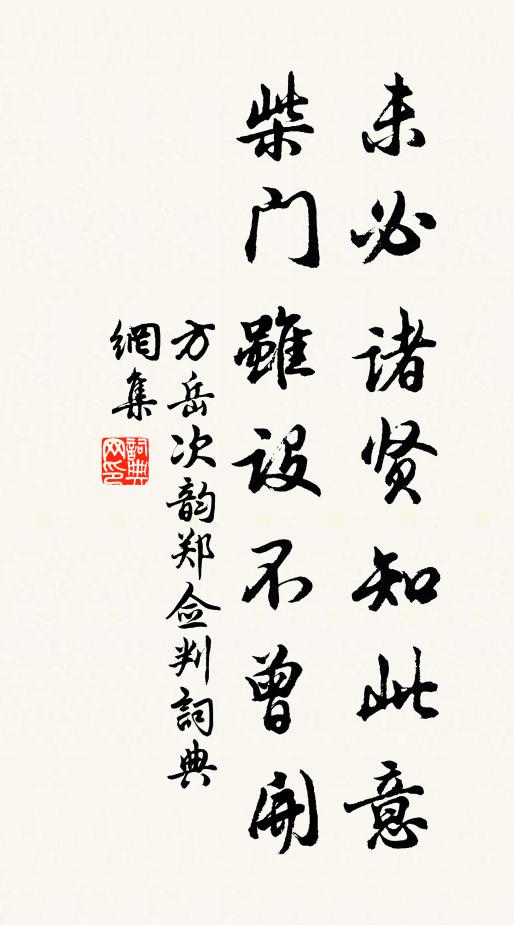 未必诸贤知此意
柴门雖设不曾開
方岳次韵郑佥判詞典
網集
詞典
网印